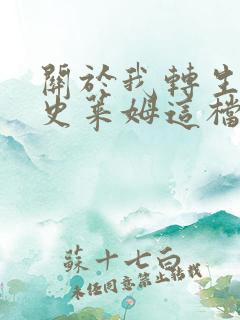 關於我轉生
史萊姆這檔
蘇十七白
未經同意禁止轉載